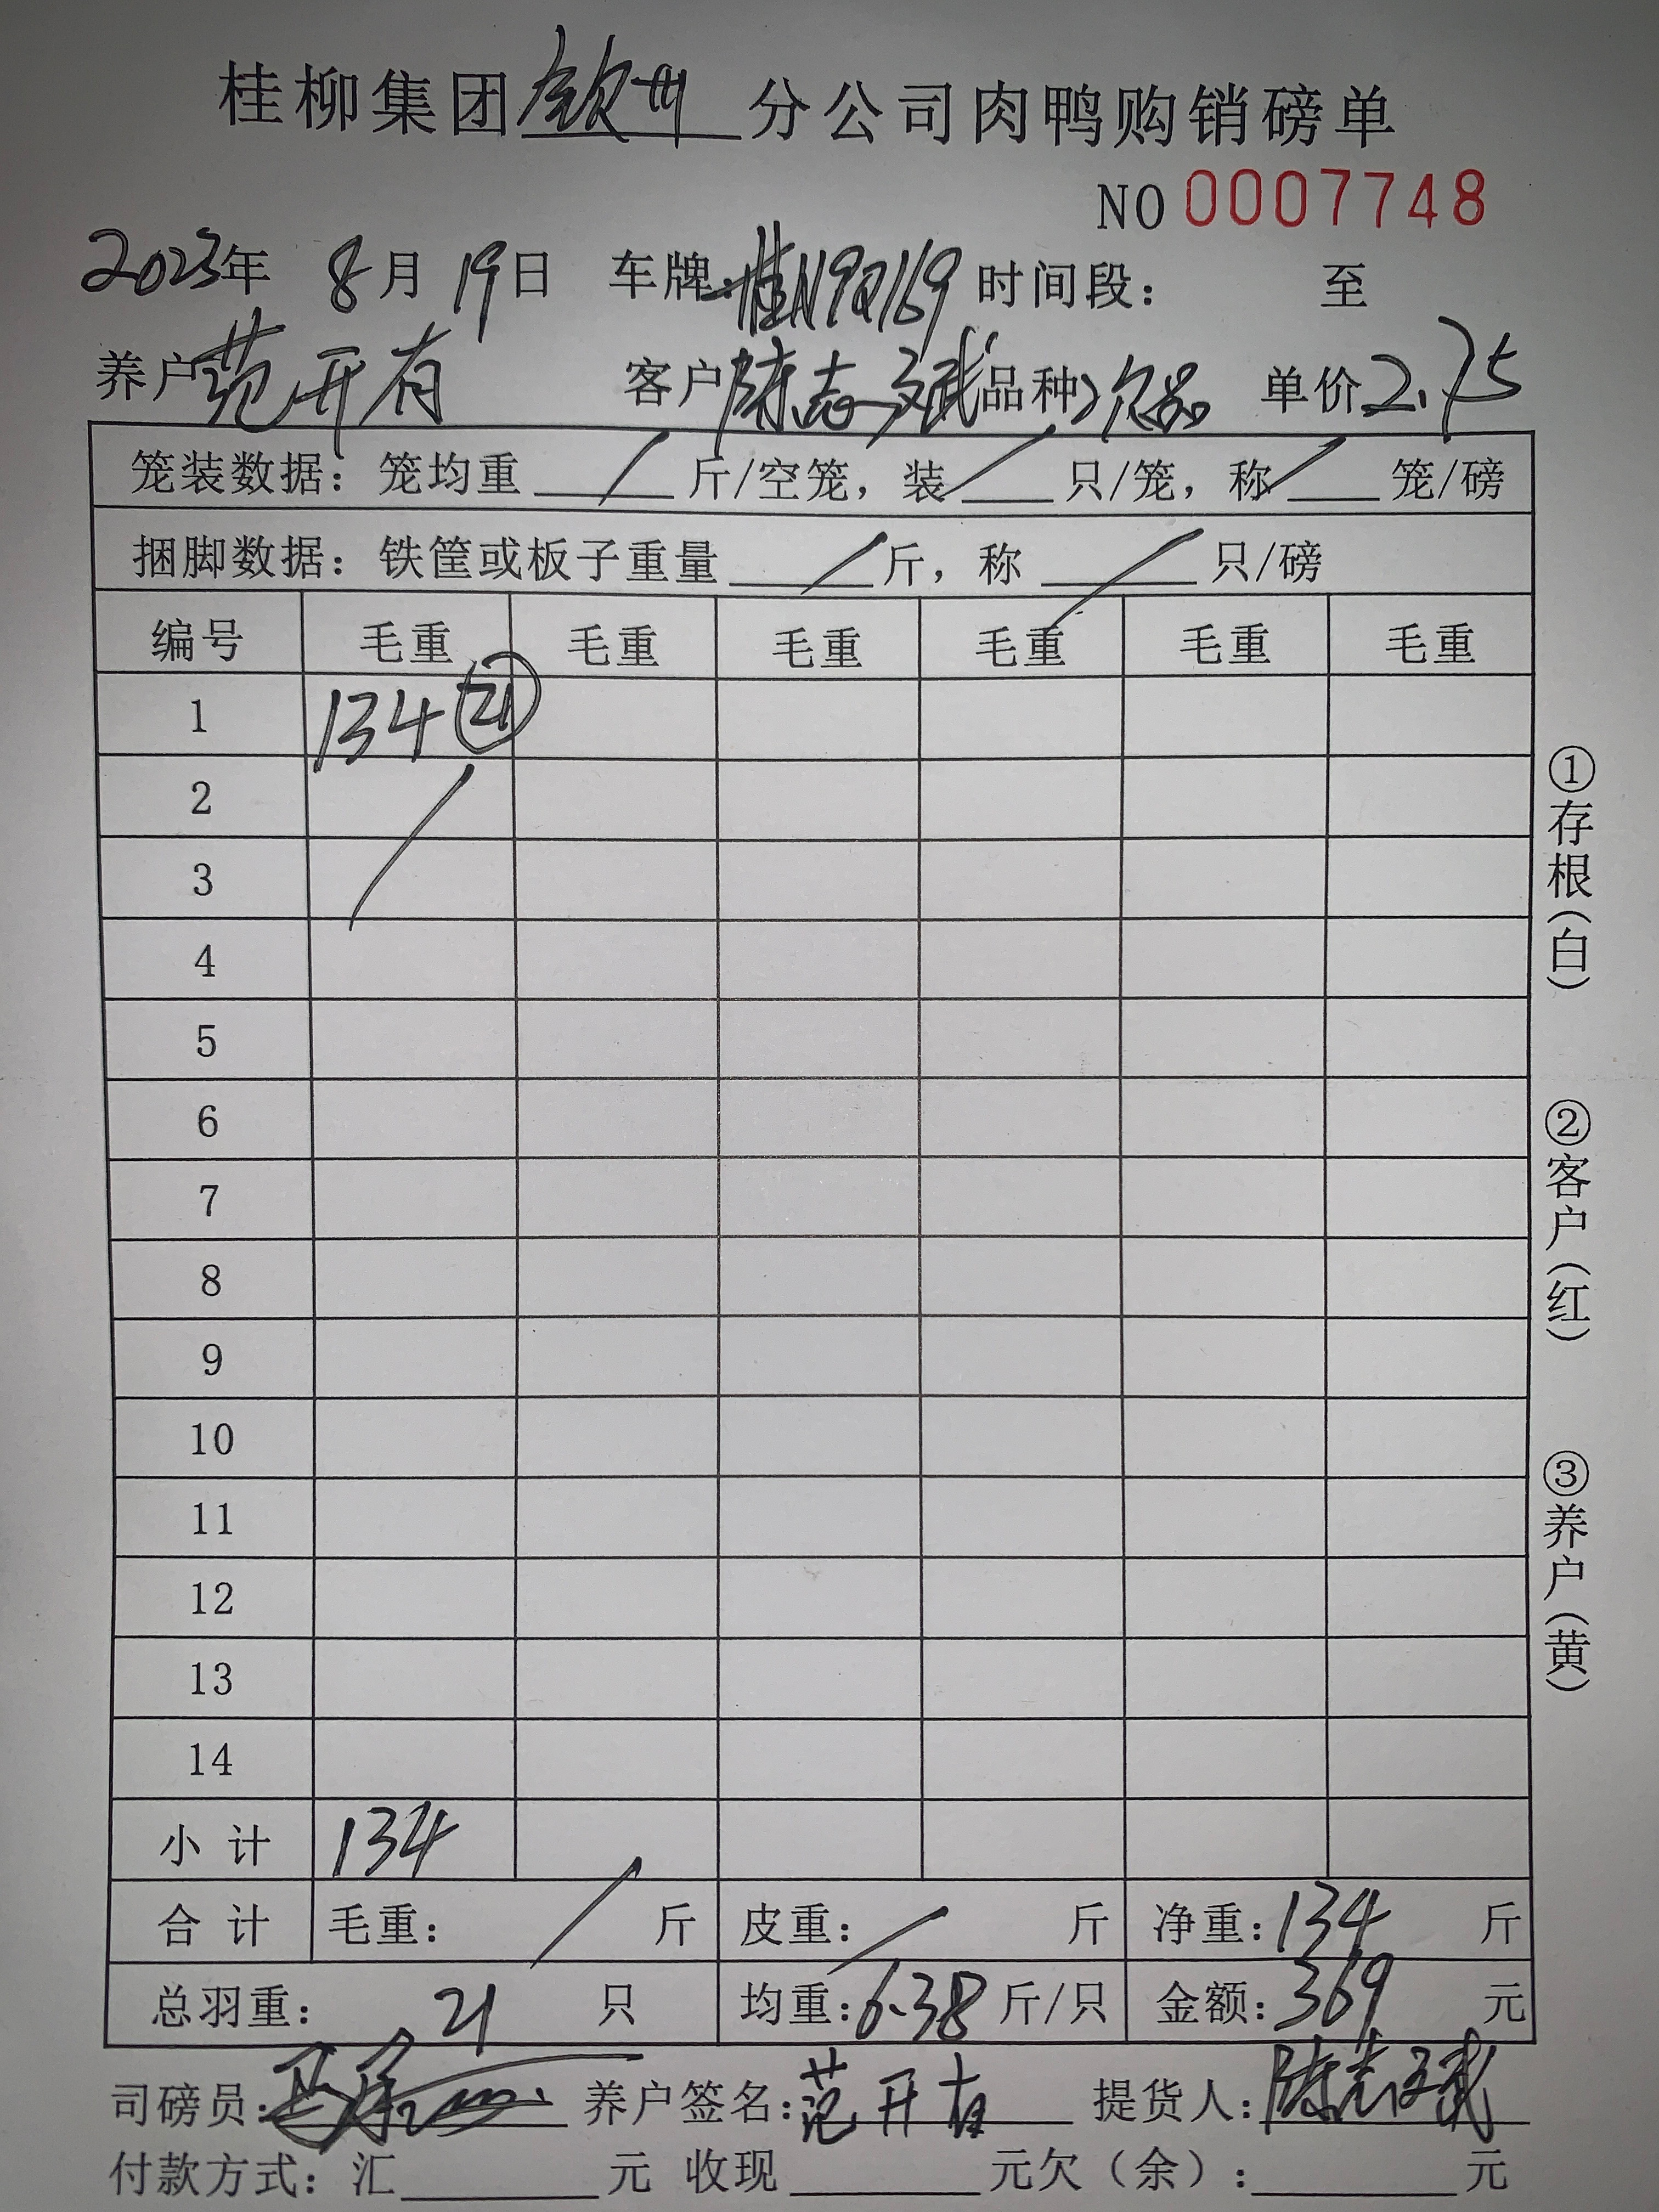 桂柳集团钦州分公司肉鸭购销磅单
NO 0007748
2023年 8月 19日 车牌:桂N9Q169 时间段: 至
养户范开有 客户陈志斌 品种:次品 单价2.75
笼装数据:笼均重 / 斤/空笼,装 / 只/笼,称 / 笼/磅
捆脚数据:铁筐或板子重量 / 斤,称 / 只/磅
编号 毛重 毛重 毛重 毛重 毛重 毛重
1 134 21
2
3
4
5
6
7
8
9
10
11
12
13
14
小 计 134
合 计 毛重: / 斤 皮重: / 斤 净重:134 斤
总羽重: 21 只 均重:6.38 斤/只 金额:369 元
司磅员: 养户签名:范开有 提货人:陈志斌
付款方式:汇 元 收现 元欠(余): 元
①存根(白)
②客户(红)
③养户(黄)